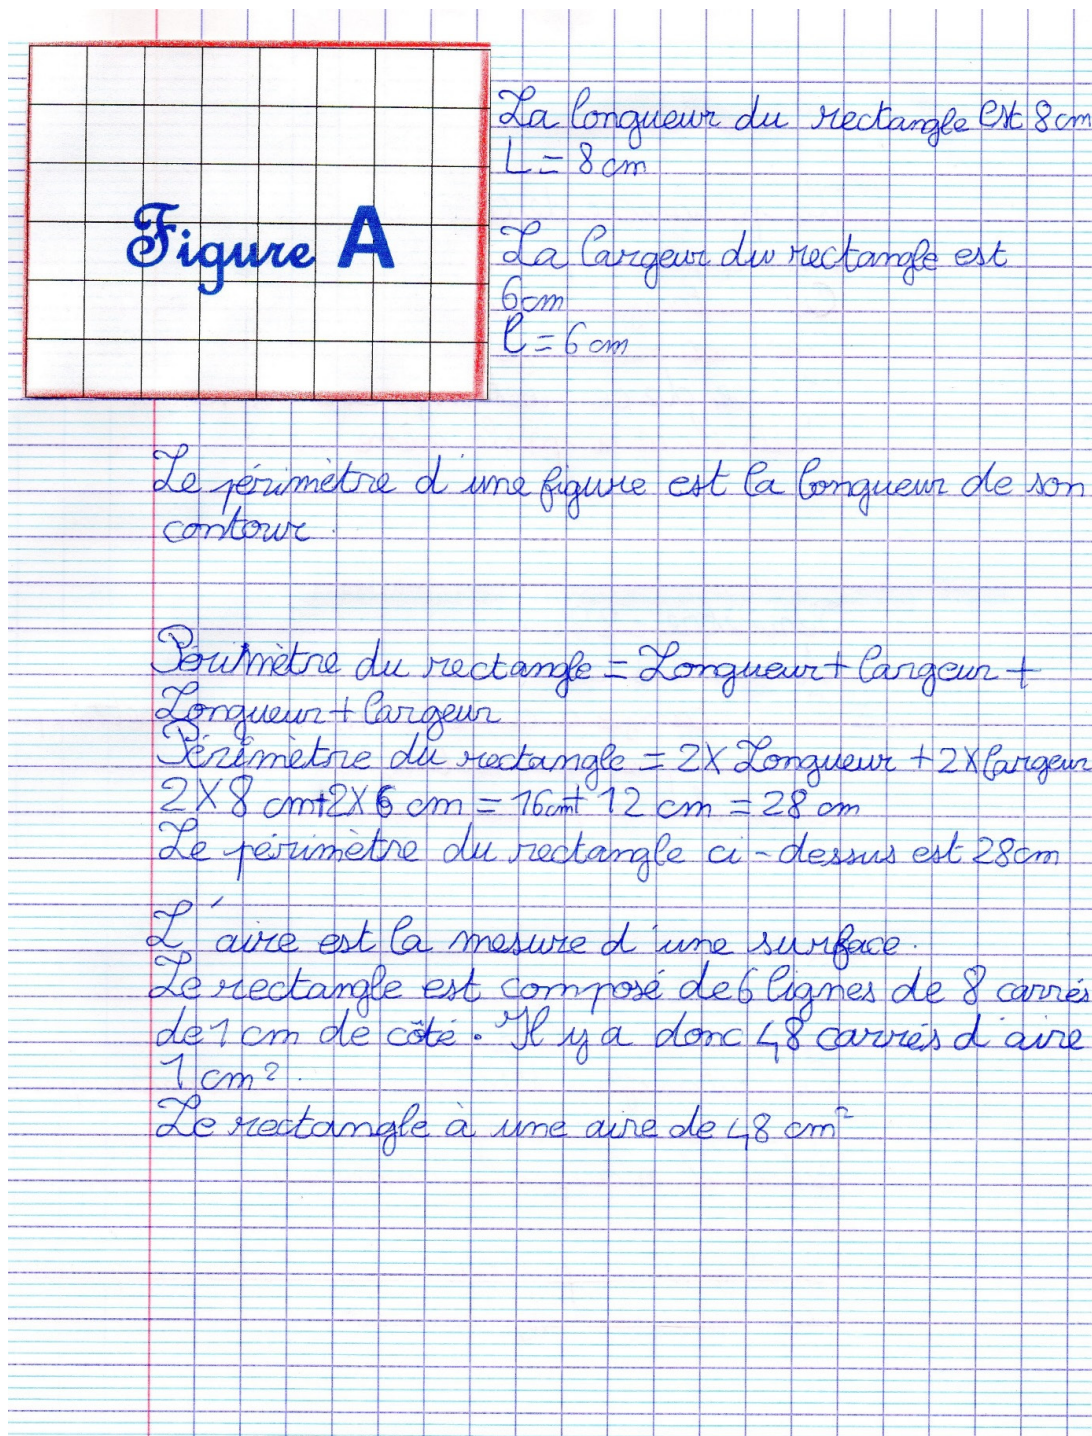 Figure A
La longueur du rectangle est 8cm
L = 8 cm
La largeur du rectangle est
6cm
l = 6 cm
Le périmètre d'une figure est la longueur de son
contour.
Périmètre du rectangle = Longueur + largeur +
Longueur + largeur
Périmètre du rectangle = 2 X Longueur + 2 X largeur
2 X 8 cm + 2 X 6 cm = 16cm + 12 cm = 28 cm
Le périmètre du rectangle ci-dessus est 28cm
L'aire est la mesure d'une surface.
Le rectangle est composé de 6 lignes de 8 carrés
de 1 cm de côté. Il y a donc 48 carrés d'aire
1 cm².
Le rectangle à une aire de 48 cm²